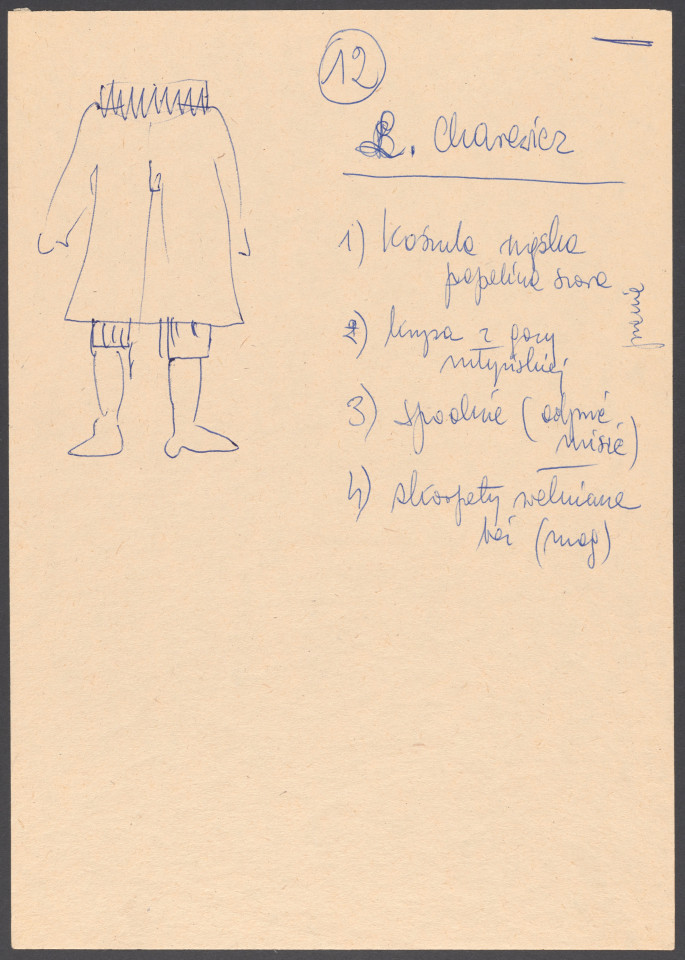 12
B. Charewicz
1) Koszula męska
popelina szara
2) kryza z gazy
młyńskiej
3) spodnie (odpiąć
misie)
4) skarpety wełniane
beż (mag)